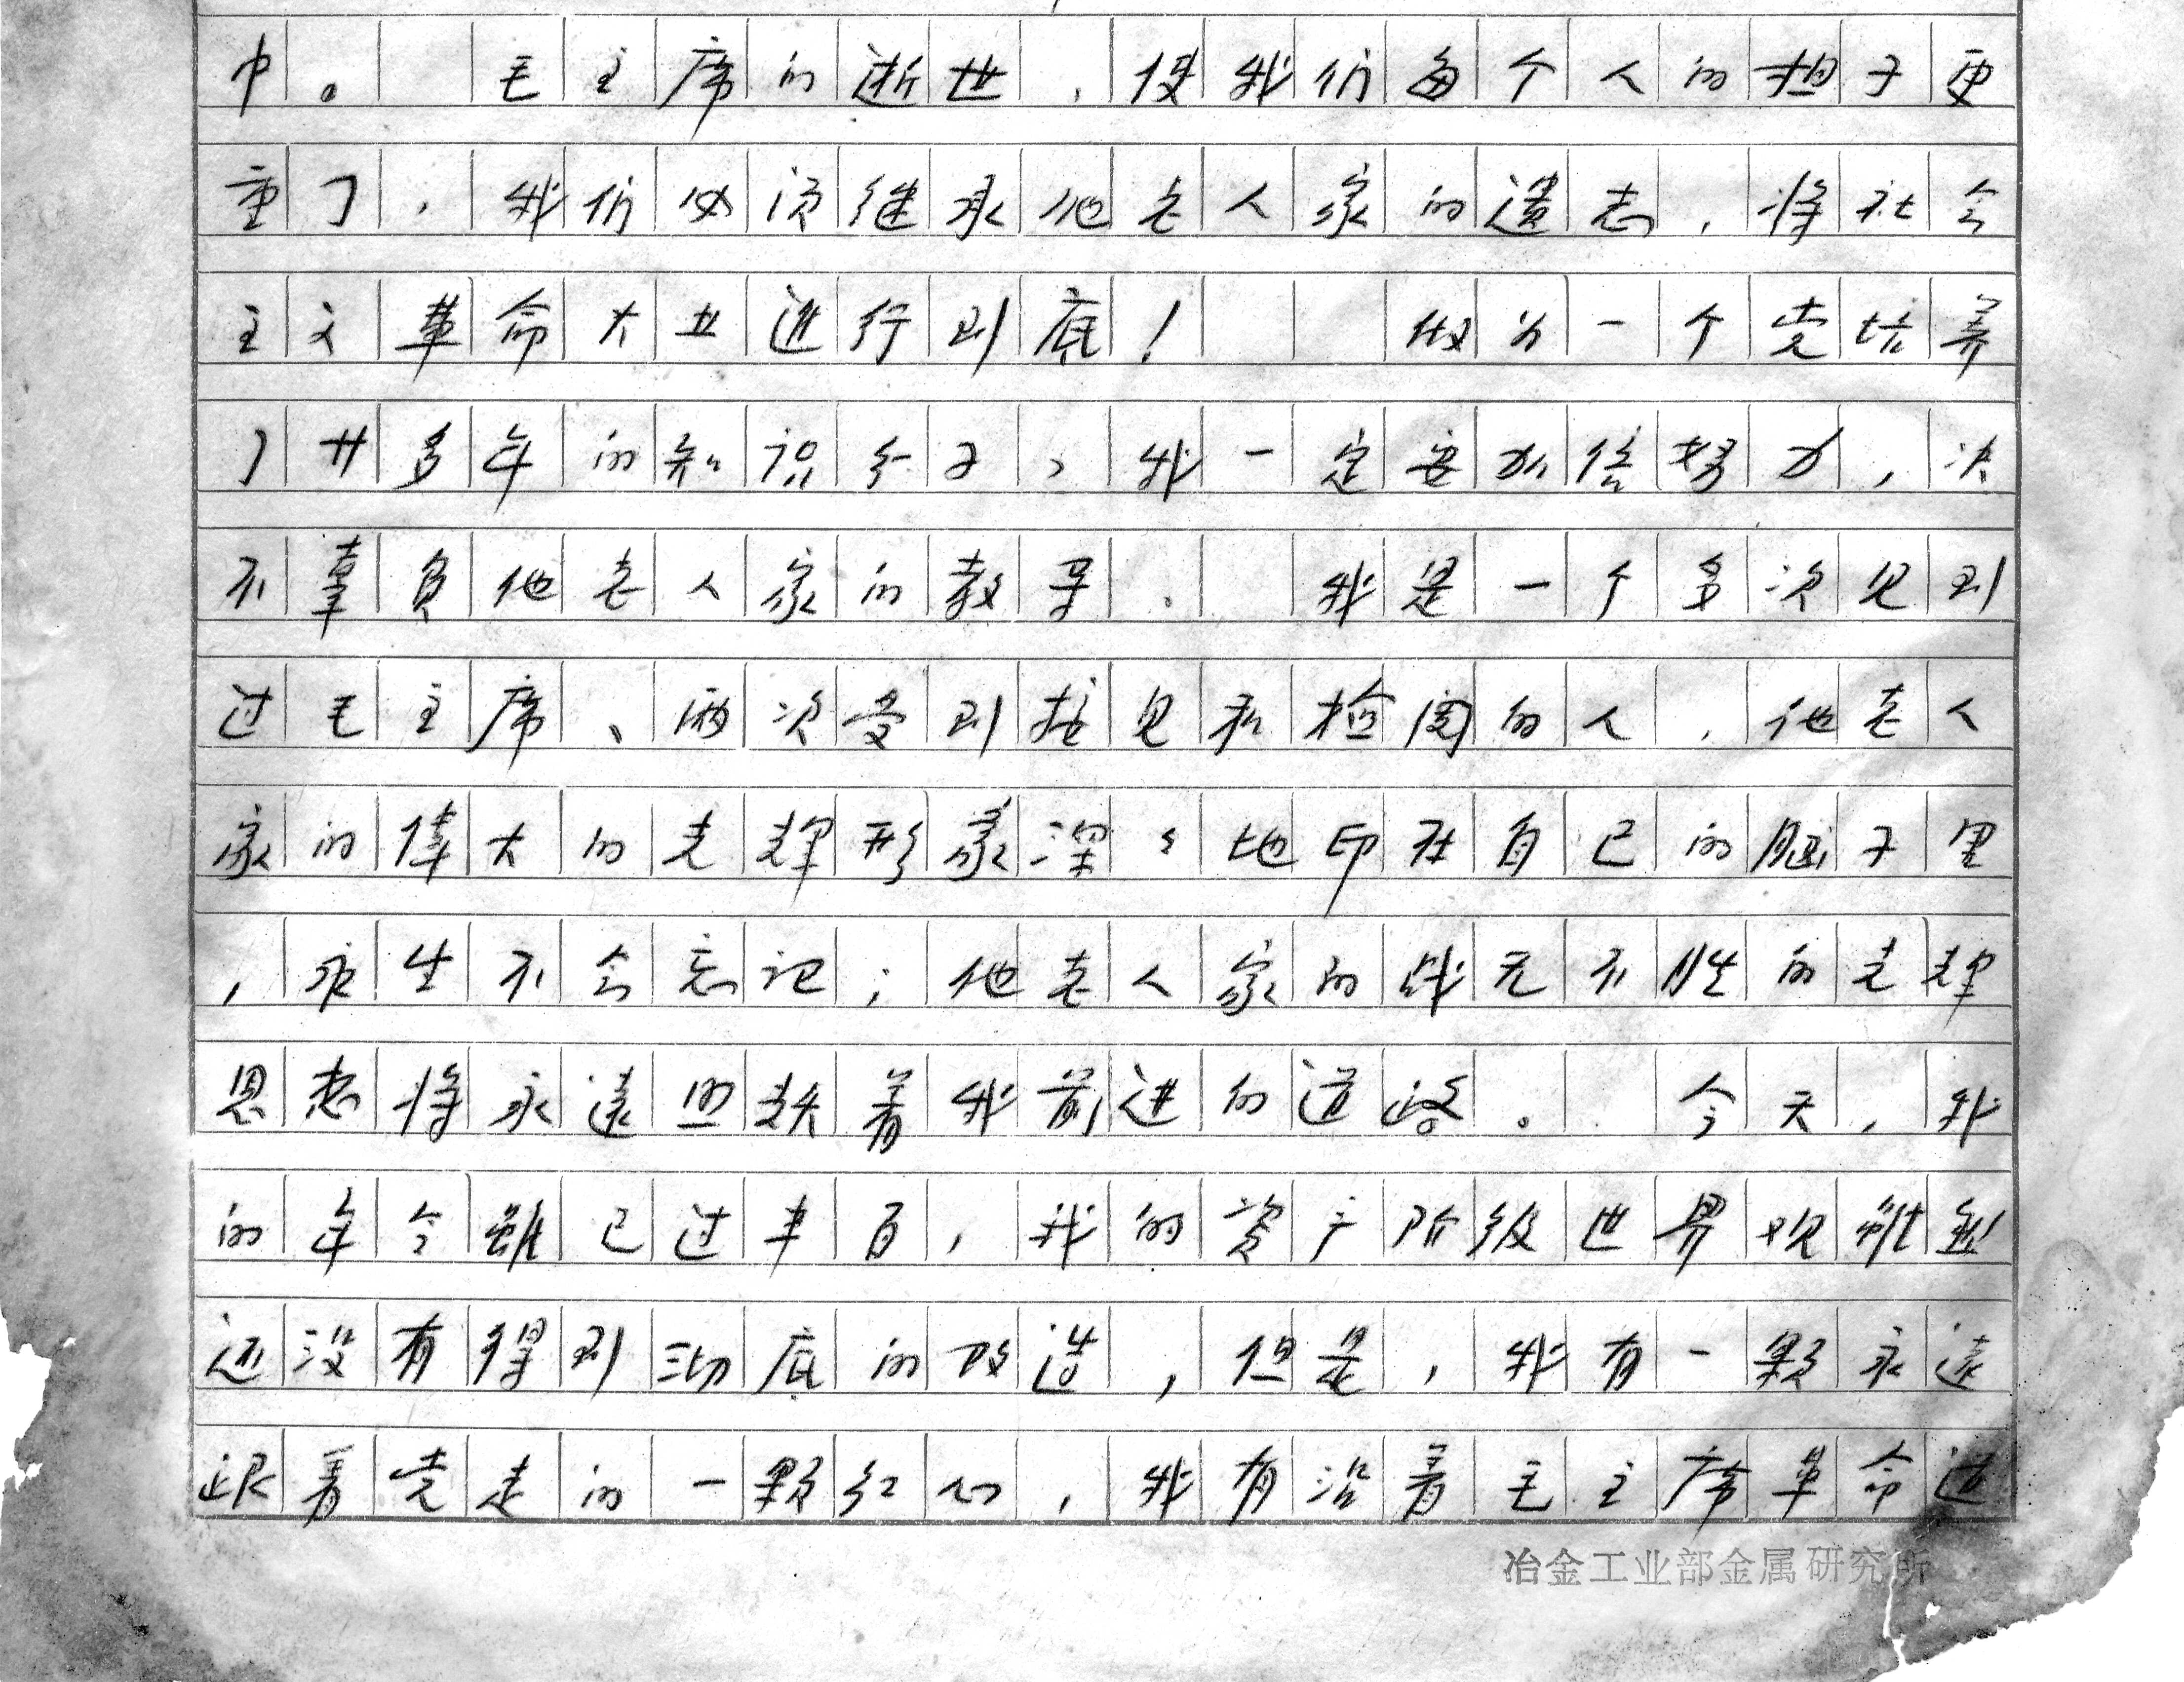 中。 毛主席的逝世,使我们每个人的担子更
重了,我们必须继承他老人家的遗志,将社会
主义革命大业进行到底! 做为一个党培养
了廿多年的知识分子,我一定要加倍努力,决
不辜负他老人家的教导。 我是一个多次见到
过毛主席、两次受到接见和检阅的人,他老人
家的伟大的光辉形象深々地印在自己的脑子里
,永生不会忘记;他老人家的战无不胜的光辉
思想将永远照耀着我前进的道路。 今天,我
的年令虽已过半百,我的资产阶级世界观虽然
还没有得到彻底的改造,但是,我有一颗永远
跟着党走的一颗红心,我有沿着毛主席革命道
冶金工业部金属研究所